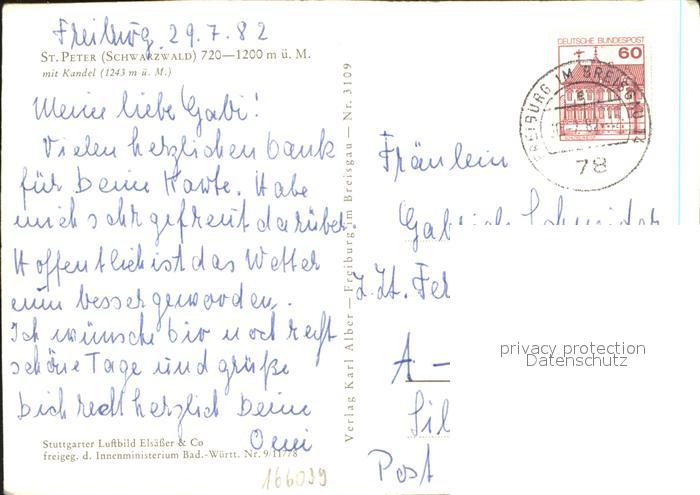 Freiburg, 29.7.82
ST. PETER (SCHWARZWALD) 720—1200 m ü. M.
mit Kandel (1243 m ü. M.)
Meine liebe Gabi!
Vielen herzlichen Dank
für Deine Karte. Habe
mich sehr gefreut darüber.
Hoffentlich ist das Wetter
nun besser geworden.
Ich wünsche Dir noch recht
schöne Tage und grüße
Dich recht herzlich Deine
Omi
Stuttgarter Luftbild Elsäßer & Co
freigeg. d. Innenministerium Bad.-Württ. Nr. 9/11778
166039
Verlag Karl Alber — Freiburg im Breisgau — Nr. 3109
DEUTSCHE BUNDESPOST
60
FREIBURG IM BREISGAU 14
78
Fräulein
Gabriele Schneider
z.Zt. Fer
A –
Sil
Post
privacy protection
Datenschutz